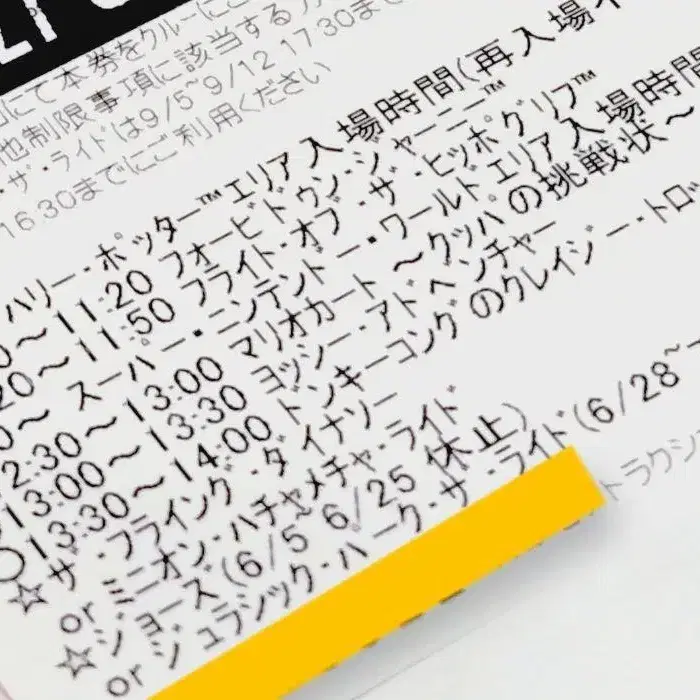 にて本券をクルーにご
他制限事項に該当する
・ザ・ライドは9/5~9/12 17:30まで
16:30までにご利用ください
ハリー・ポッター™エリア入場時間(再入場不
～11:20 フォービドゥン・ジャーニー™
20～11:50 フライト・オブ・ザ・ヒッポグリフ™
～ スーパー・ニンテンドー・ワールドエリア入場時間
12:30～13:00 マリオカート ～クッパの挑戦状～
13:00～13:30 ヨッシー・アドベンチャー
○13:30～14:00 ドンキーコングのクレイジー・トロッ
☆ザ・フライング・ダイナソー
or ミニオン・ハチャメチャ・ライド
☆ジョーズ(6/5~6/25 休止)
or ジュラシック・パーク・ザ・ライド(6/28~
トラクシ